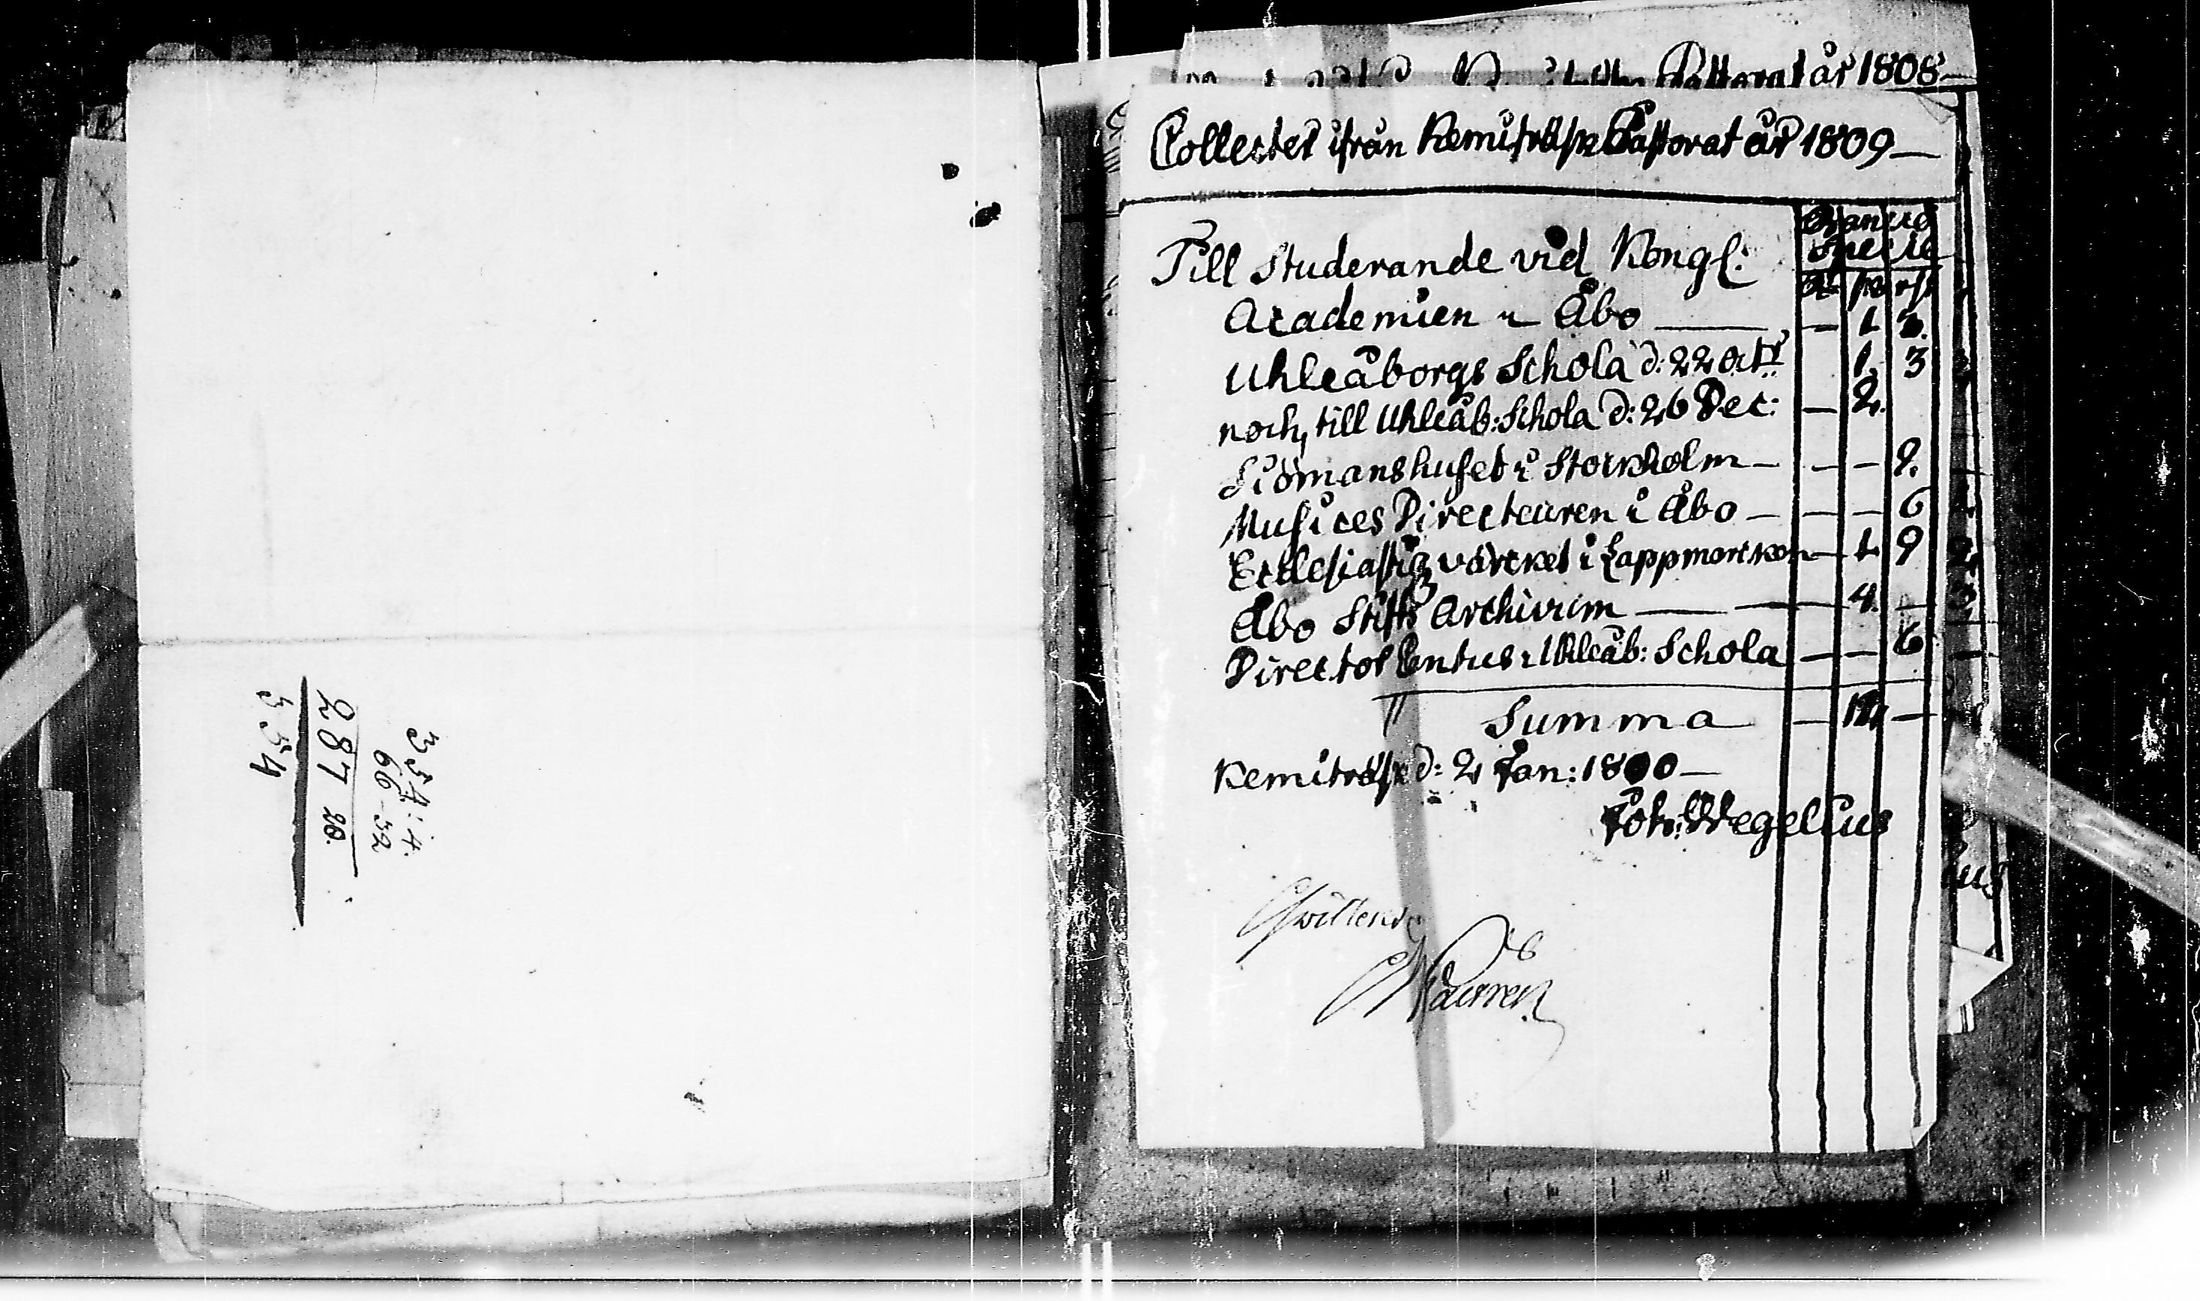 354: 4.
66-32
287 20.
354
Pastorat år 1808
Collecter ifrån Kemiträsk Pastorat år 1809
Banco
Specie
Rd sk rst
Till Studerande vid Kongl:
Academien i Åbo — — 1 3.
Uhleåborgs Schola d: 22 Octr 1. 3
noch, till Uhleåb: Schola d: 26 Dec: — 2.
Siömanshuset i Stockholm — — — 9.
Musices Directeuren i Åbo — — — 6
Ecclesiastiq värcket i Lappmarcken — 1. 9
Åbo Stifts Archivum — — 4. —
Director Cantus i Uhleåb: Schola — — 6
Summa — 12 —
Kemiträsk d: 2 Jan: 1810
Joh: Wegelius
Qwitteras